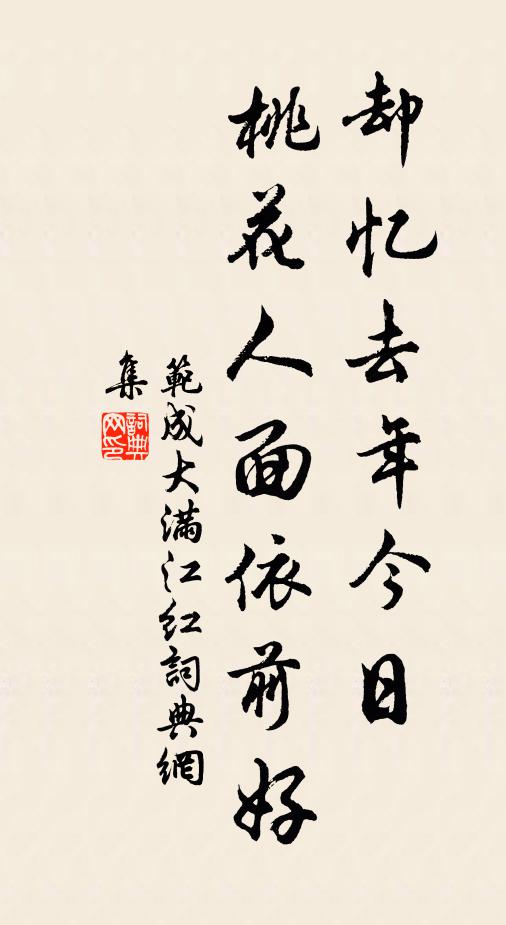 却忆去年今日
桃花人面依前好
範成大满江红詞典網
集
詞典网印